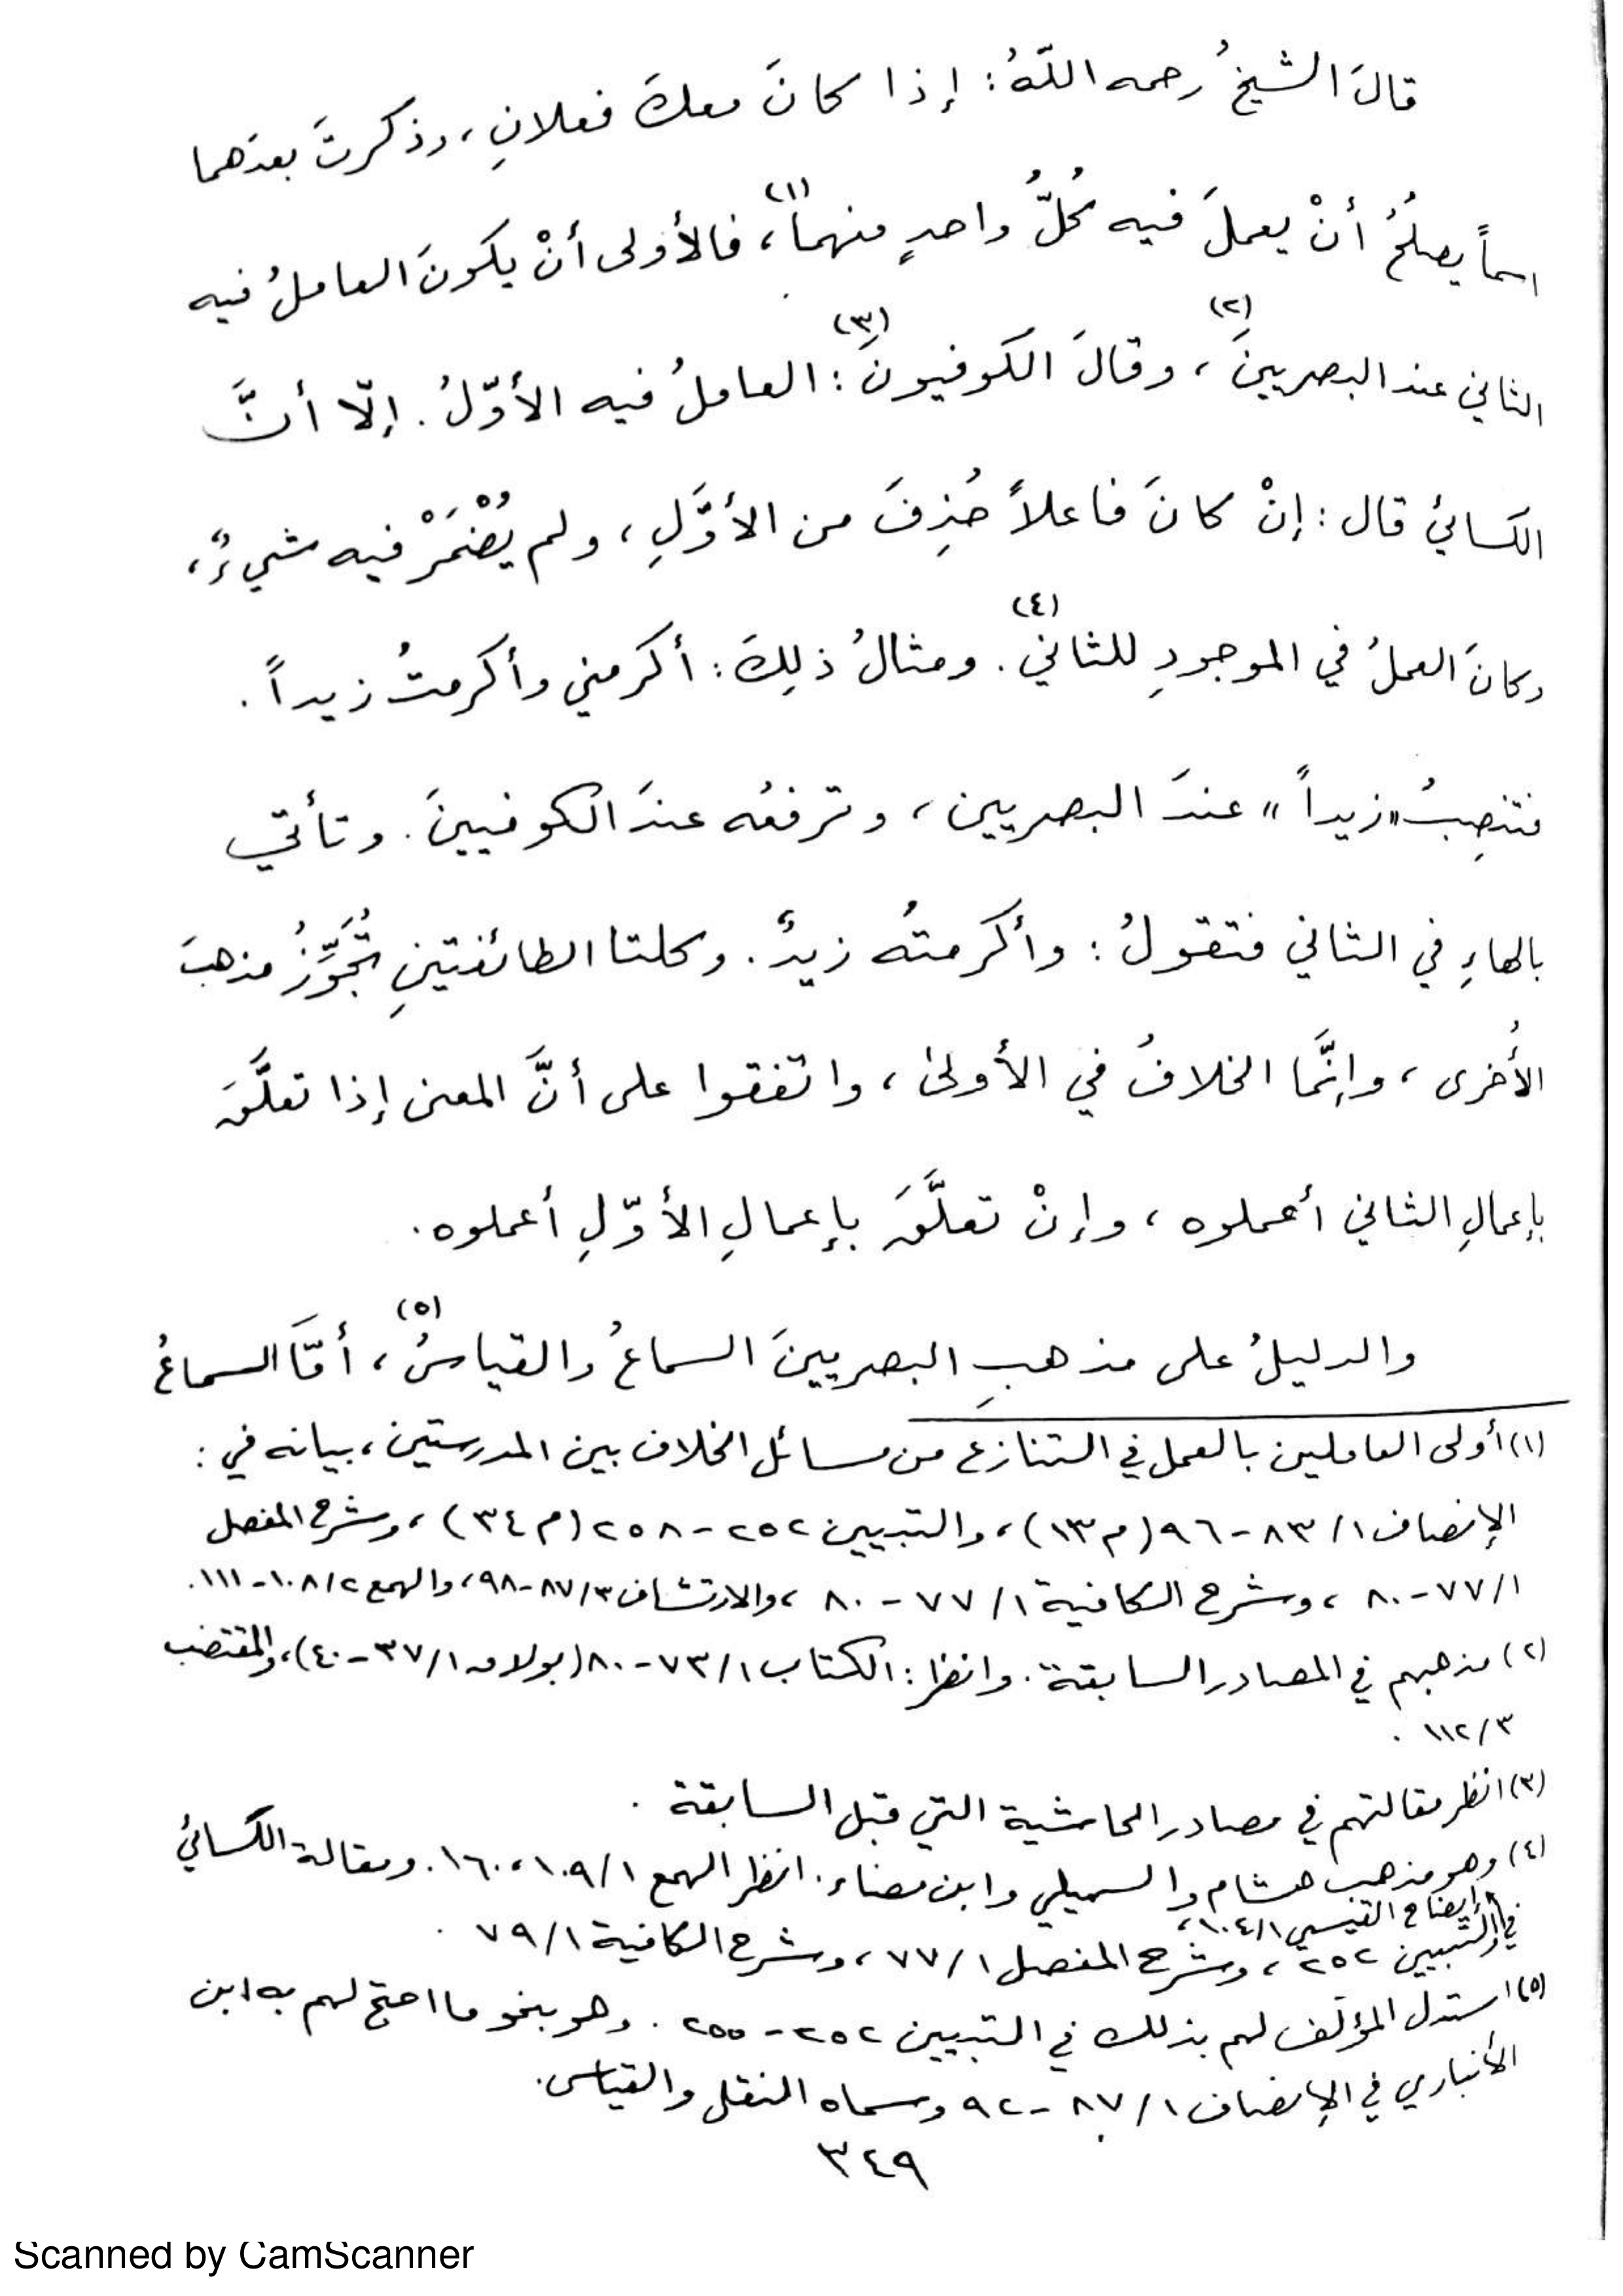 قالَ الشيخُ رحمه اللّهُ: إذا كانَ معكَ فعلانِ، وذكرتَ بعدَهما
اسماً يصلُحُ أنْ يعملَ فيه كُلُّ واحدٍ منهما(١)، فالأولى أنْ يكونَ العاملُ فيه
الثاني عند البصريينَ(٢)، وقالَ الكوفيونَ(٣): العاملُ فيه الأوّلُ. إلّا أنَّ
الكسائيَّ قال: إنْ كانَ فاعلاً حُذِفَ من الأوَّلِ، ولم يُضْمَرْ فيه شيءٌ،
وكانَ العملُ في الموجودِ للثاني(٤). ومثالُ ذلِكَ: أكرمني وأكرمتُ زيداً.
فتنصِبُ «زيداً» عندَ البصريين، وترفعُه عندَ الكوفيينَ. وتأتي
بالهاءِ في الثاني فتقولُ: وأكرمتُه زيدٌ. وكلتا الطائفتينِ تُجَوِّزُ مذهبَ
الأُخرى، وإنَّما الخلافُ في الأولىٰ، واتفقوا على أنَّ المعنى إذا تعلَّقَ
بإعمالِ الثاني أعملوه، وإنْ تعلَّقَ بإعمالِ الأوّلِ أعملوه.
والدليلُ على مذهبِ البصريينَ السماعُ والقياسُ(٥)، أمّا السماعُ
(١) أولى العاملين بالعمل في التنازع من مسائل الخلاف بين المدرستين، بيانه في:
الإنصاف ١/ ٨٣-٩٦ (م ١٣)، والتبيين ٢٥٢-٢٥٨ (م ٣٤)، وشرح المفصل
١/ ٧٧-٨٠، وشرح الكافية ١/ ٧٧-٨٠، والارتشاف ٣/ ٨٧-٩٨، والهمع ٢/ ١٠٨-١١١.
(٢) مذهبهم في المصادر السابقة. وانظر: الكتاب ١/ ٧٣-٨٠ (بولاق ١/ ٣٧-٤٠)، والمقتضب
٣/ ١١٢.
(٣) انظر مقالتهم في مصادر الحاشية التي قبل السابقة.
(٤) وهو مذهب هشام والسهيلي وابن مضاء. انظر الهمع ١/ ١٠٩، ١٦٠. ومقالة الكسائي
في إيضاح القيسي ١/ ١٠٤، والتبيين ٢٥٢، وشرح المفصل ١/ ٧٧، وشرح الكافية ١/ ٧٩.
(٥) استدل المؤلف لهم بذلك في التبيين ٢٥٢-٢٥٥. وهو بنحو ما احتج لهم به ابن
الأنباري في الإنصاف ١/ ٨٧-٩٢ وسماه النقل والقياس.
٣٤٩
Scanned by CamScanner